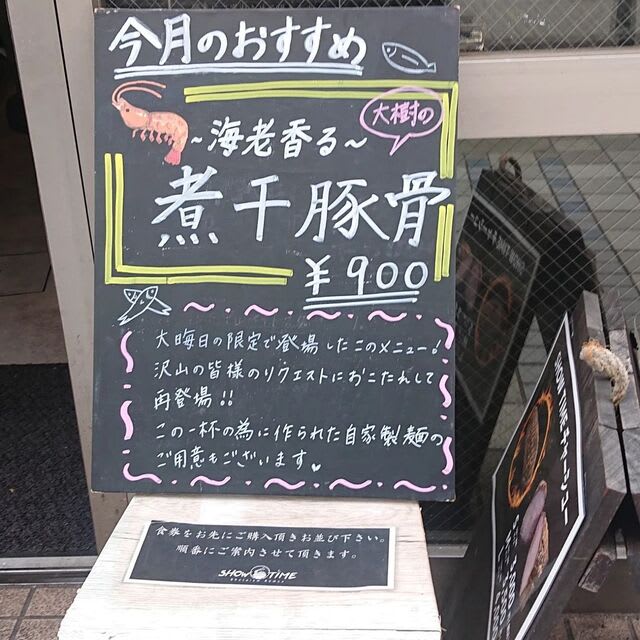 今月のおすすめ
大樹の
~海老香る~
煮干豚骨
¥900
大晦日の限定で登場したこのメニュー!
沢山の皆様のリクエストにおこたえして
再登場!!
この一杯の為に作られた自家製麺の
ご用意もございます♥
食券をお先にご購入頂きお並び下さい。
順番にご案内させて頂きます。
SHOW TIME
SHOW TIMEチャーシュー